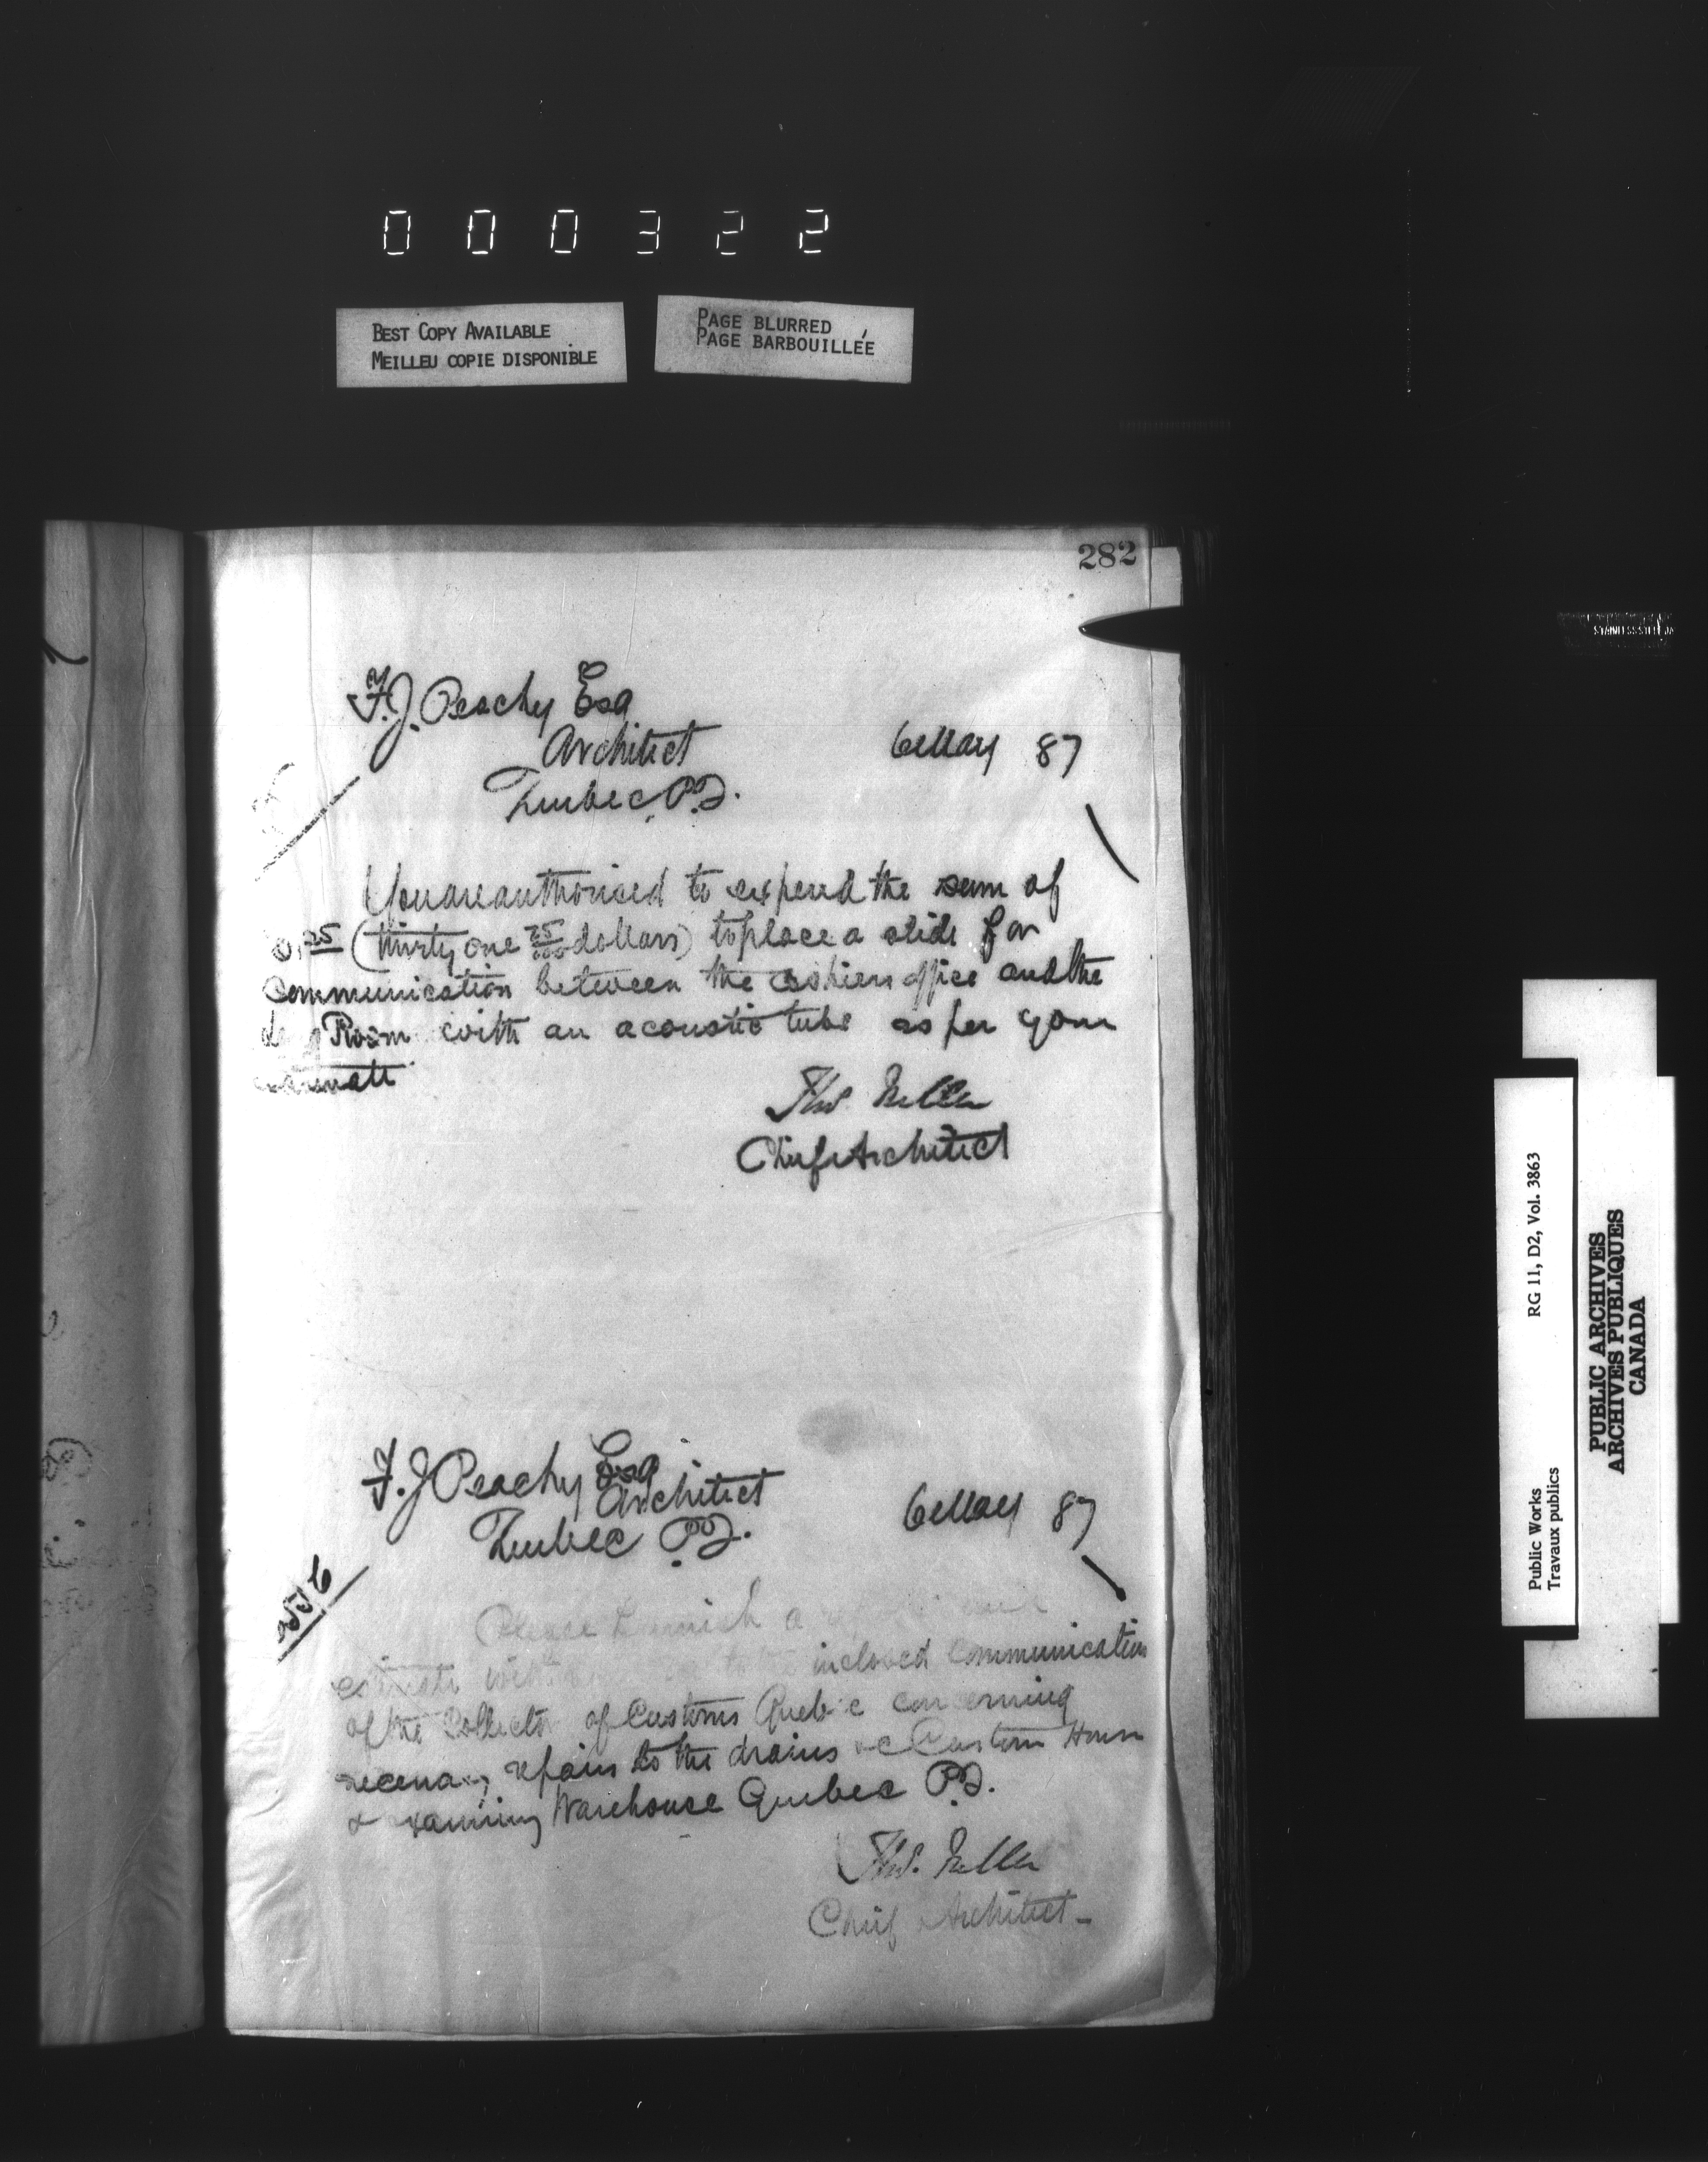 000322
BEST COPY AVAILABLE
MEILLEU COPIE DISPONIBLE
PAGE BLURRED
PAGE BARBOUILLÉE
282
F.J. Peachy Esq
Architect
Quebec P.Q.
6 May 87
You are authorised to expend the sum of
(thirty one 25/100 dollars) to place a slide for
Communication between the Cashiers office and the
Room with an acoustic tube as per your
Thos. Fuller
Chief Architect
F.J Peachy Esq
Architect
Quebec P.Q.
6 May 87
Please furnish a
estimate with inclosed Communication
of the Collector of Customs Quebec concerning
necessary repairs to the drains &c Custom House
& examining Warehouse Quebec P.Q.
Thos. Fuller
Chief Architect
STAINLESS STEEL
RG 11, D2, Vol. 3863
Public Works
Travaux publics
PUBLIC ARCHIVES
ARCHIVES PUBLIQUES
CANADA